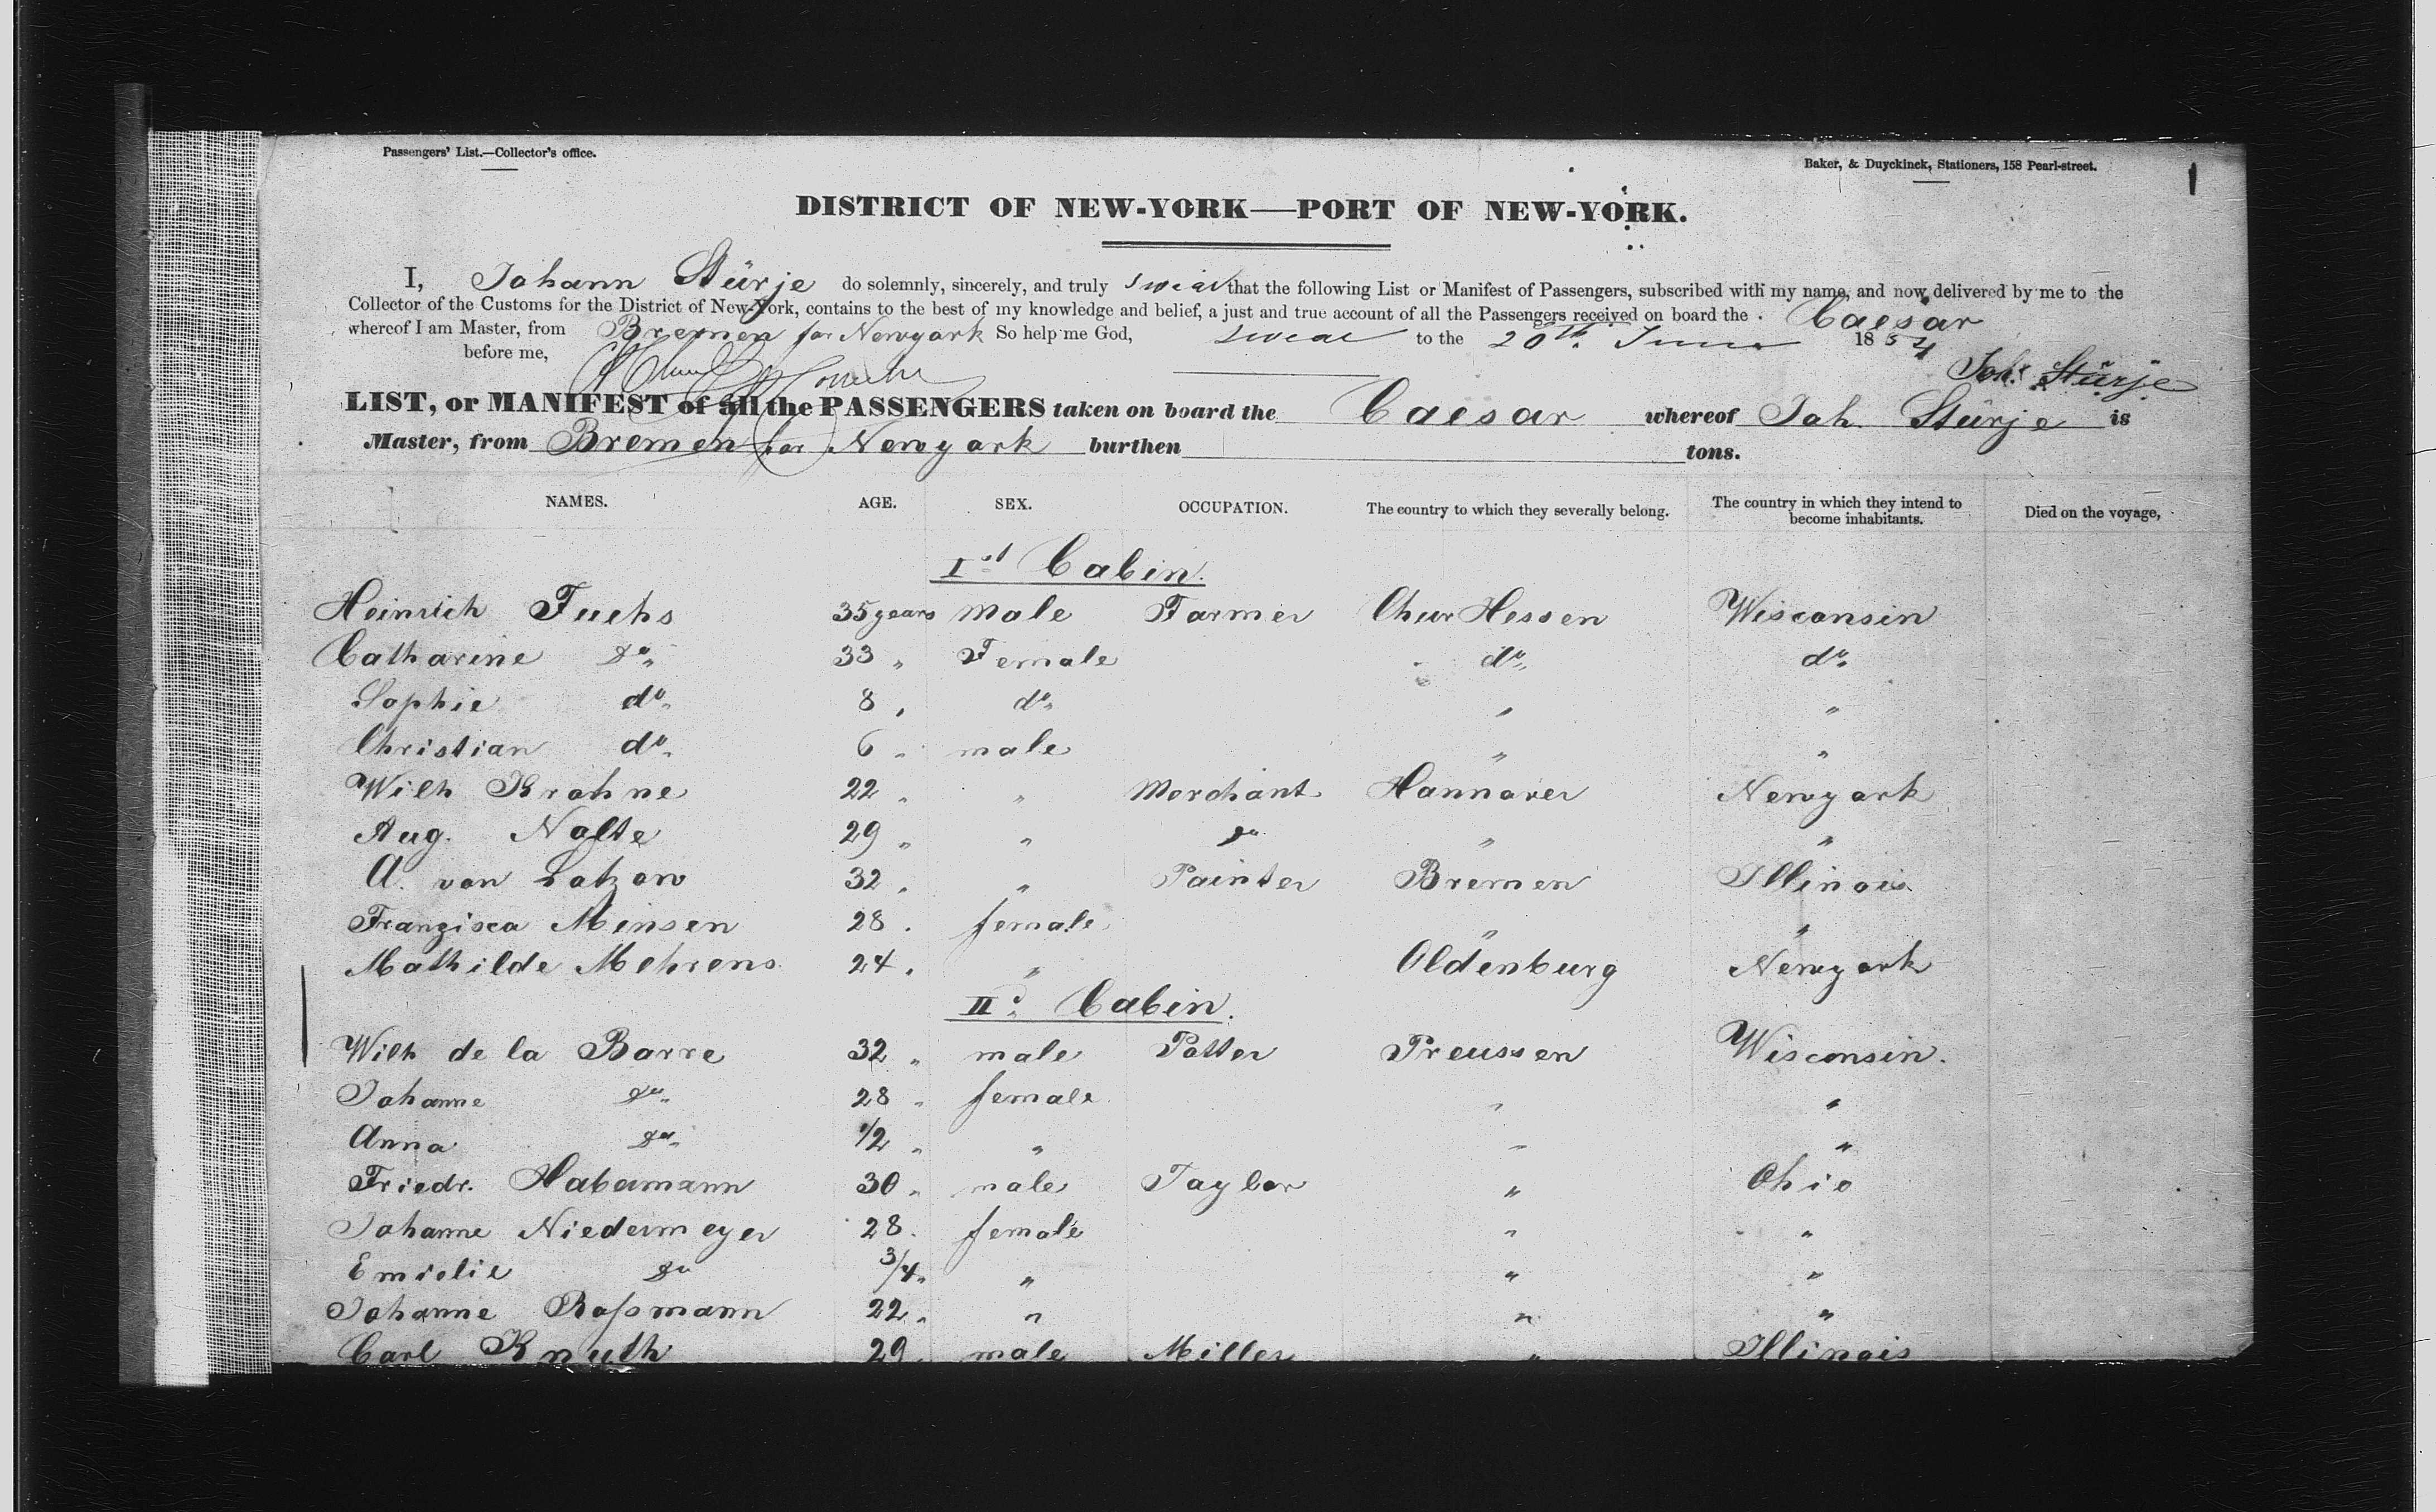 Passengers' List.—Collector's office.
Baker, & Duyckinck, Stationers, 158 Pearl-street.
1
DISTRICT OF NEW-YORK—PORT OF NEW-YORK.
I, Johann Stürje do solemnly, sincerely, and truly swear that the following List or Manifest of Passengers, subscribed with my name, and now delivered by me to the
Collector of the Customs for the District of New-York, contains to the best of my knowledge and belief, a just and true account of all the Passengers received on board the Caesar
whereof I am Master, from Bremen for Newyork So help me God, swear to the 20th June 1854
before me,
Joh. Stürje
LIST, or MANIFEST of all the PASSENGERS taken on board the Caesar whereof Joh. Stürje is
Master, from Bremen for Newyork burthen tons.
NAMES. AGE. SEX. OCCUPATION. The country to which they severally belong. The country in which they intend to become inhabitants. Died on the voyage,
Ist Cabin.
Heinrich Fuchs 35 years male Farmer Chur Hessen Wisconsin
Catharine do. 33 " Female do. do.
Sophie do. 8 " do. " "
Christian do. 6 " male " "
Wilh Krohne 22 " " Merchant Hannover Newyork
Aug. Nolte 29 " " do " "
A. von Lotzow 32 " " Painter Bremen Illinois
Franzisca Minsen 28 " female " "
Mathilde Mehrens 24 " " Oldenburg Newyork
IId. Cabin.
Wilh de la Barre 32 " male Potter Preussen Wisconsin.
Johanne do. 28 " female " "
Anna do. 1/2 " " " "
Friedr. Habermann 30 " male Taylor " Ohio
Johanne Niedermeyer 28 " female " "
Emielie do 3/4 " " " "
Johanne Roßmann 22 " " " "
Carl Knuth 29 " male Miller " Illinois